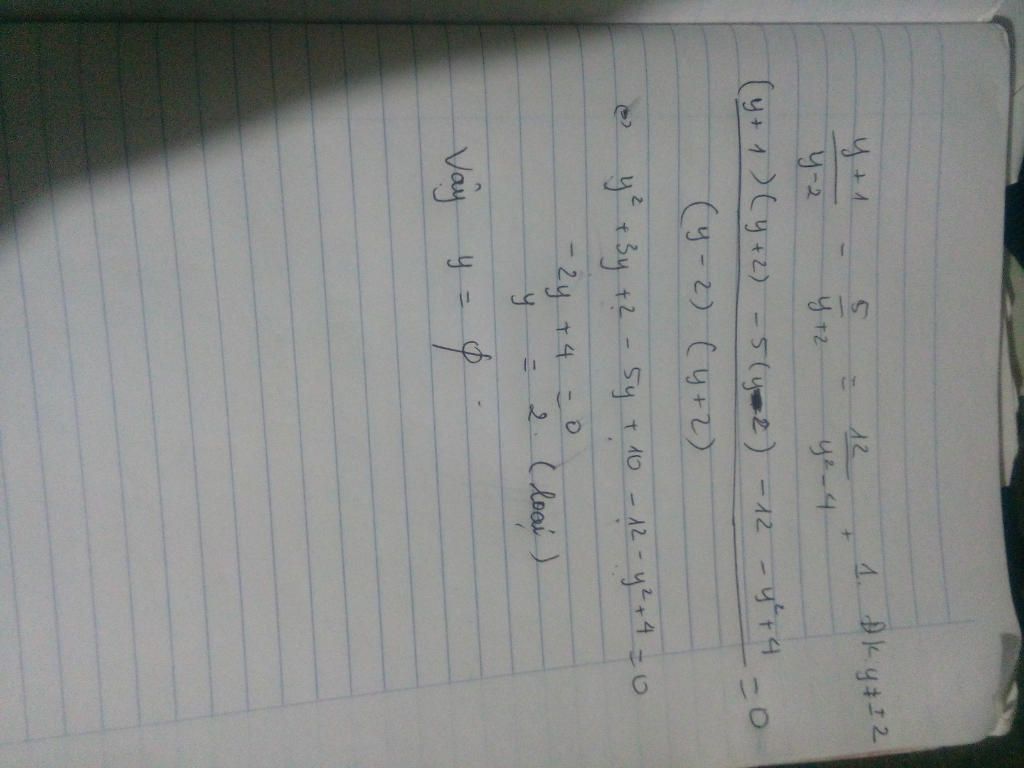 y+1/y-2 - 5/y+2 = 12/y²-4 + 1. Đk y ≠ ± 2
(y+1)(y+2) - 5(y-2) - 12 - y²+4 / (y-2)(y+2) = 0
⇔ y² + 3y + 2 - 5y + 10 - 12 - y² + 4 = 0
-2y + 4 = 0
y = 2. (loại)
Vậy y = ∅.